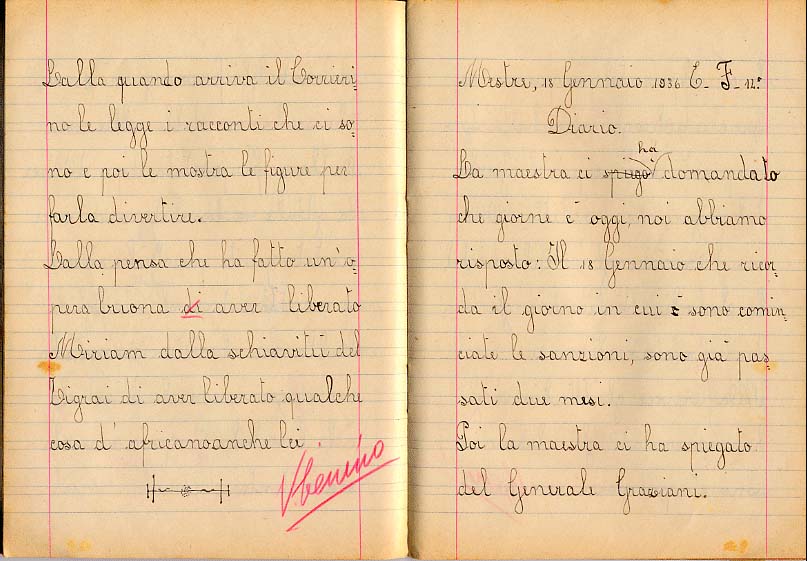 Lalla quando arriva il Corrieri-
no le legge i racconti che ci so-
no e poi le mostra le figure per
farla divertire.
Lalla pensa che ha fatto un'o-
pera buona di aver liberato
Miriam dalla schiavitù del
Tigrai di aver liberato qualche
cosa d'africanoanche lei
V. benino
Mestre, 18 Gennaio 1936 E. F. 14°
Diario.
ha
La maestra ci spiegò domandato
che giorne è oggi, noi abbiamo
risposto: Il 18 Gennaio che ricor-
da il giorno in cui è sono comin-
ciate le sanzioni, sono già pas-
sati due mesi.
Poi la maestra ci ha spiegato
del Generale Graziani.